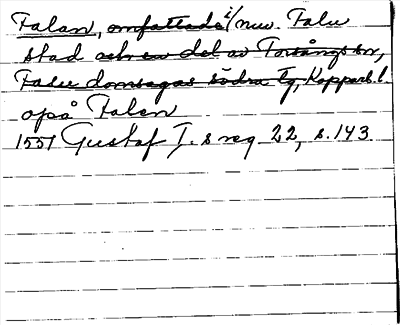 Falan, omfattade i/ nuv. Falu
stad och en del av Torsångs sn,
Falu domsagas södra tg, Kopparb. l
opå Falen
1551 Gustaf I.s reg 22, s. 143